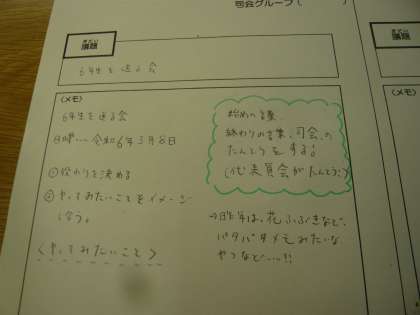 司会グループ(
ぎだい
議題
6年生を送る会
〈メモ〉
6年生を送る会
日時…令和6年3月8日
①役わりを決める
②やってみたいことをイメージ
し合う。
〈やってみたいこと〉
始めの言葉、
終わりの言葉、司会、の
たんとうをする!
(代表員会がたんとう!)
→昨年は、花ふぶきなど、
パタパタメモみたいな
やつなど…!!
ぎだい
議題
〈メモ〉